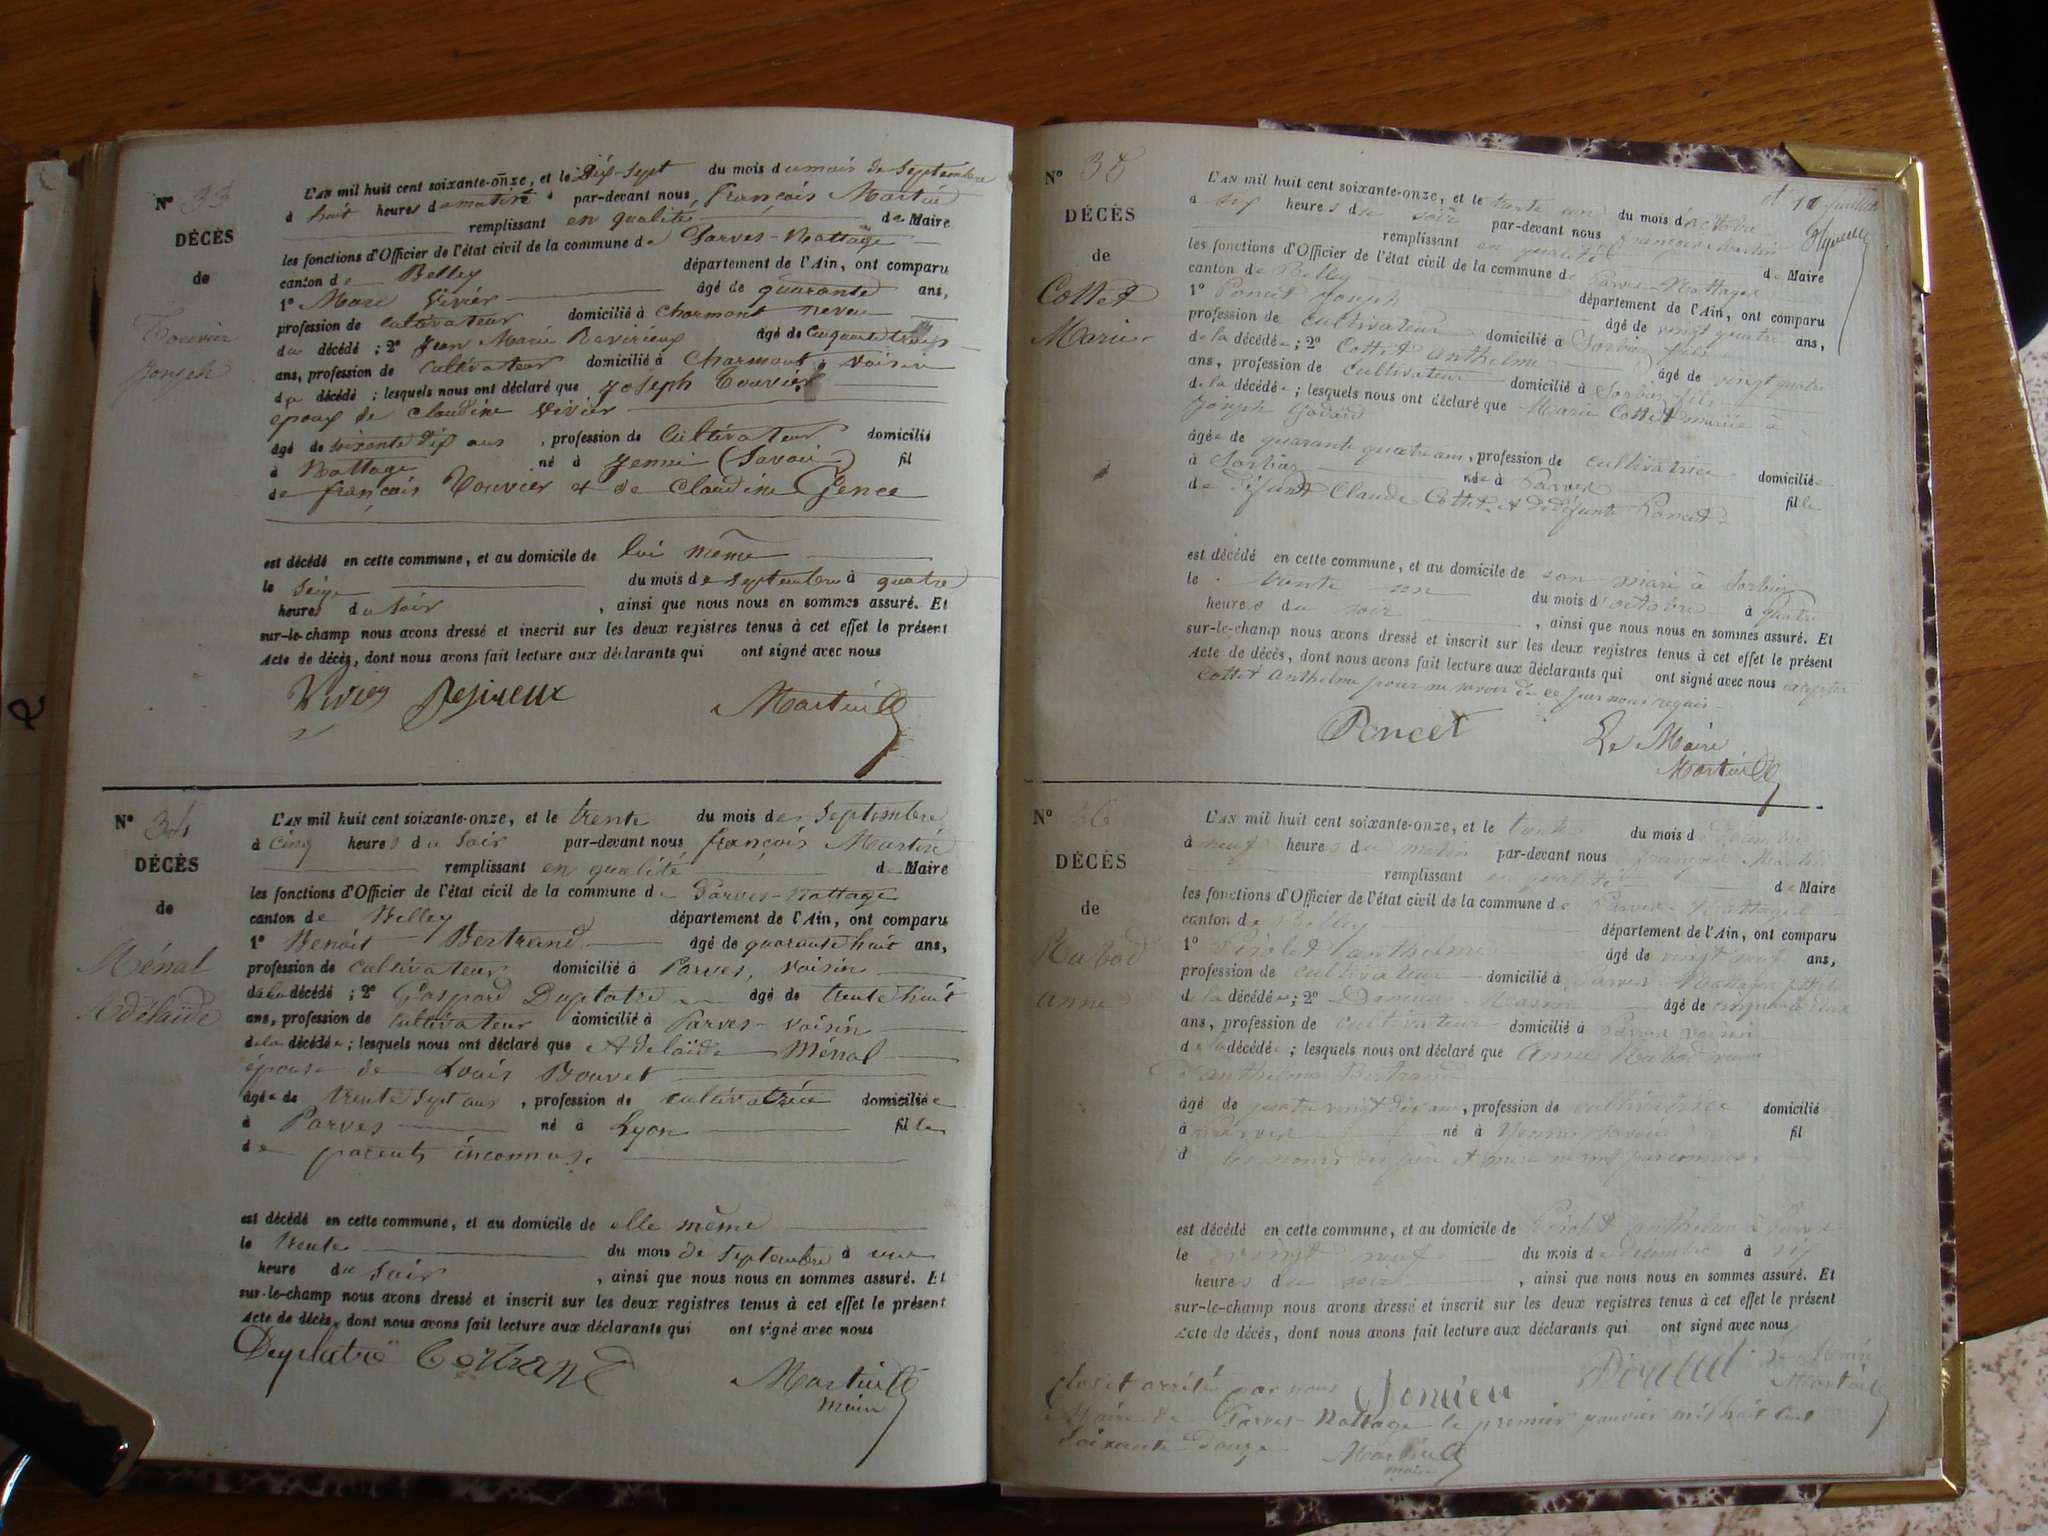 N° 33
DÉCÈS
de
Touvier
Joseph
L'AN mil huit cent soixante-onze, et le Dix-sept du mois du mois de septembre
à huit heures du matin par-devant nous, françois Martin
remplissant en qualité de Maire
les fonctions d'Officier de l'état civil de la commune de Parves-Nattage
canton de Belley département de l'Ain, ont comparu
1° Marc Vivier âgé de quarante ans,
profession de cultivateur domicilié à Charmont neveu
du décédé ; 2° Jean Marie âgé de cinquante trois
ans, profession de cultivateur domicilié à Charmont voisin
du décédé ; lesquels nous ont déclaré que Joseph Touvier
époux de claudine Vivier
âgé de soixante dix ans, profession de cultivateur domicilié
à Nattage né à Yenne (Savoie) fil
de françois Touvier et de Claudine Gence
est décédé en cette commune, et au domicile de lui même
le seize du mois de septembre à quatre
heures du soir, ainsi que nous nous en sommes assuré. Et
sur-le-champ nous avons dressé et inscrit sur les deux registres tenus à cet effet le présent
Acte de décès, dont nous avons fait lecture aux déclarants qui ont signé avec nous
Vivier Martin
N° 34
DÉCÈS
de
Ménal
Adélaïde
L'AN mil huit cent soixante-onze, et le trente du mois de septembre
à cinq heures du soir par-devant nous françois Martin
remplissant en qualité de Maire
les fonctions d'Officier de l'état civil de la commune de Parves-Nattage
canton de Belley département de l'Ain, ont comparu
1° Benoit Bertrand âgé de quarante huit ans,
profession de cultivateur domicilié à Parves, voisin
de la décédé ; 2° Gaspard Duplatre âgé de trente huit
ans, profession de cultivateur domicilié à Parves-voisin
de la décédée ; lesquels nous ont déclaré que Adelaïde Ménal
épouse de Louis Bouvet
âgée de trente sept ans, profession de cultivatrice domiciliée
à Parves né à Lyon fille
de parents inconnus.
est décédé en cette commune, et au domicile de elle même
le trente du mois de septembre à une
heure du soir, ainsi que nous nous en sommes assuré. Et
sur-le-champ nous avons dressé et inscrit sur les deux registres tenus à cet effet le présent
Acte de décès, dont nous avons fait lecture aux déclarants qui ont signé avec nous
Martin
maire
N° 35
DÉCÈS
de
Cottet
Marie
L'AN mil huit cent soixante-onze, et le trente un du mois d'octobre
à six heures du soir par-devant nous françois Martin
remplissant en qualité de Maire
les fonctions d'Officier de l'état civil de la commune de Parves-Nattages
canton de Belley département de l'Ain, ont comparu
1° Poncet Joseph âgé de vingt quatre ans,
profession de cultivateur domicilié à Sorbier fils
de la décédée ; 2° Cottet Anthelme âgé de vingt quatre
ans, profession de cultivateur domicilié à Sorbier
de la décédée ; lesquels nous ont déclaré que Marie Cottet mariée à
Joseph Godard
âgée de quarante quatre ans, profession de cultivatrice domiciliée
à Sorbier née à Parves fille
de défunt Claude Cottet et de défunte Poncet
est décédé en cette commune, et au domicile de son mari à Sorbier
le trente un du mois d'octobre à quatre
heures du soir, ainsi que nous nous en sommes assuré. Et
sur-le-champ nous avons dressé et inscrit sur les deux registres tenus à cet effet le présent
Acte de décès, dont nous avons fait lecture aux déclarants qui ont signé avec nous excepté
Cottet Anthelme pour ne savoir de ce par nous requis
Poncet Le Maire
Martin
N° 36
DÉCÈS
de
Rubod
anne
L'AN mil huit cent soixante-onze, et le trente du mois de décembre
à neuf heures du matin par-devant nous françois Martin
remplissant en qualité de Maire
les fonctions d'Officier de l'état civil de la commune de Parves-Nattages
canton de Belley département de l'Ain, ont comparu
1° anthelme âgé de vingt neuf ans,
profession de cultivateur domicilié à Parves-Nattages
de la décédée ; 2° âgé de cinquante deux
ans, profession de cultivateur domicilié à Parves voisin
de la décédée ; lesquels nous ont déclaré que Anne Rubod veuve
d'anthelme Bertrand
âgé de quatre vingt dix ans, profession de cultivatrice domicilié
à Parves né à Yenne Savoie fil
d les noms des père et mère ne sont pas connus.
est décédé en cette commune, et au domicile de anthelme à Parves
le vingt neuf du mois de décembre à six
heures du soir, ainsi que nous nous en sommes assuré. Et
sur-le-champ nous avons dressé et inscrit sur les deux registres tenus à cet effet le présent
Acte de décès, dont nous avons fait lecture aux déclarants qui ont signé avec nous
le Maire
Martin
Clos et arrêté par nous
Maire de Parves-Nattage le premier janvier mil huit cent
soixante douze
Martin
maire